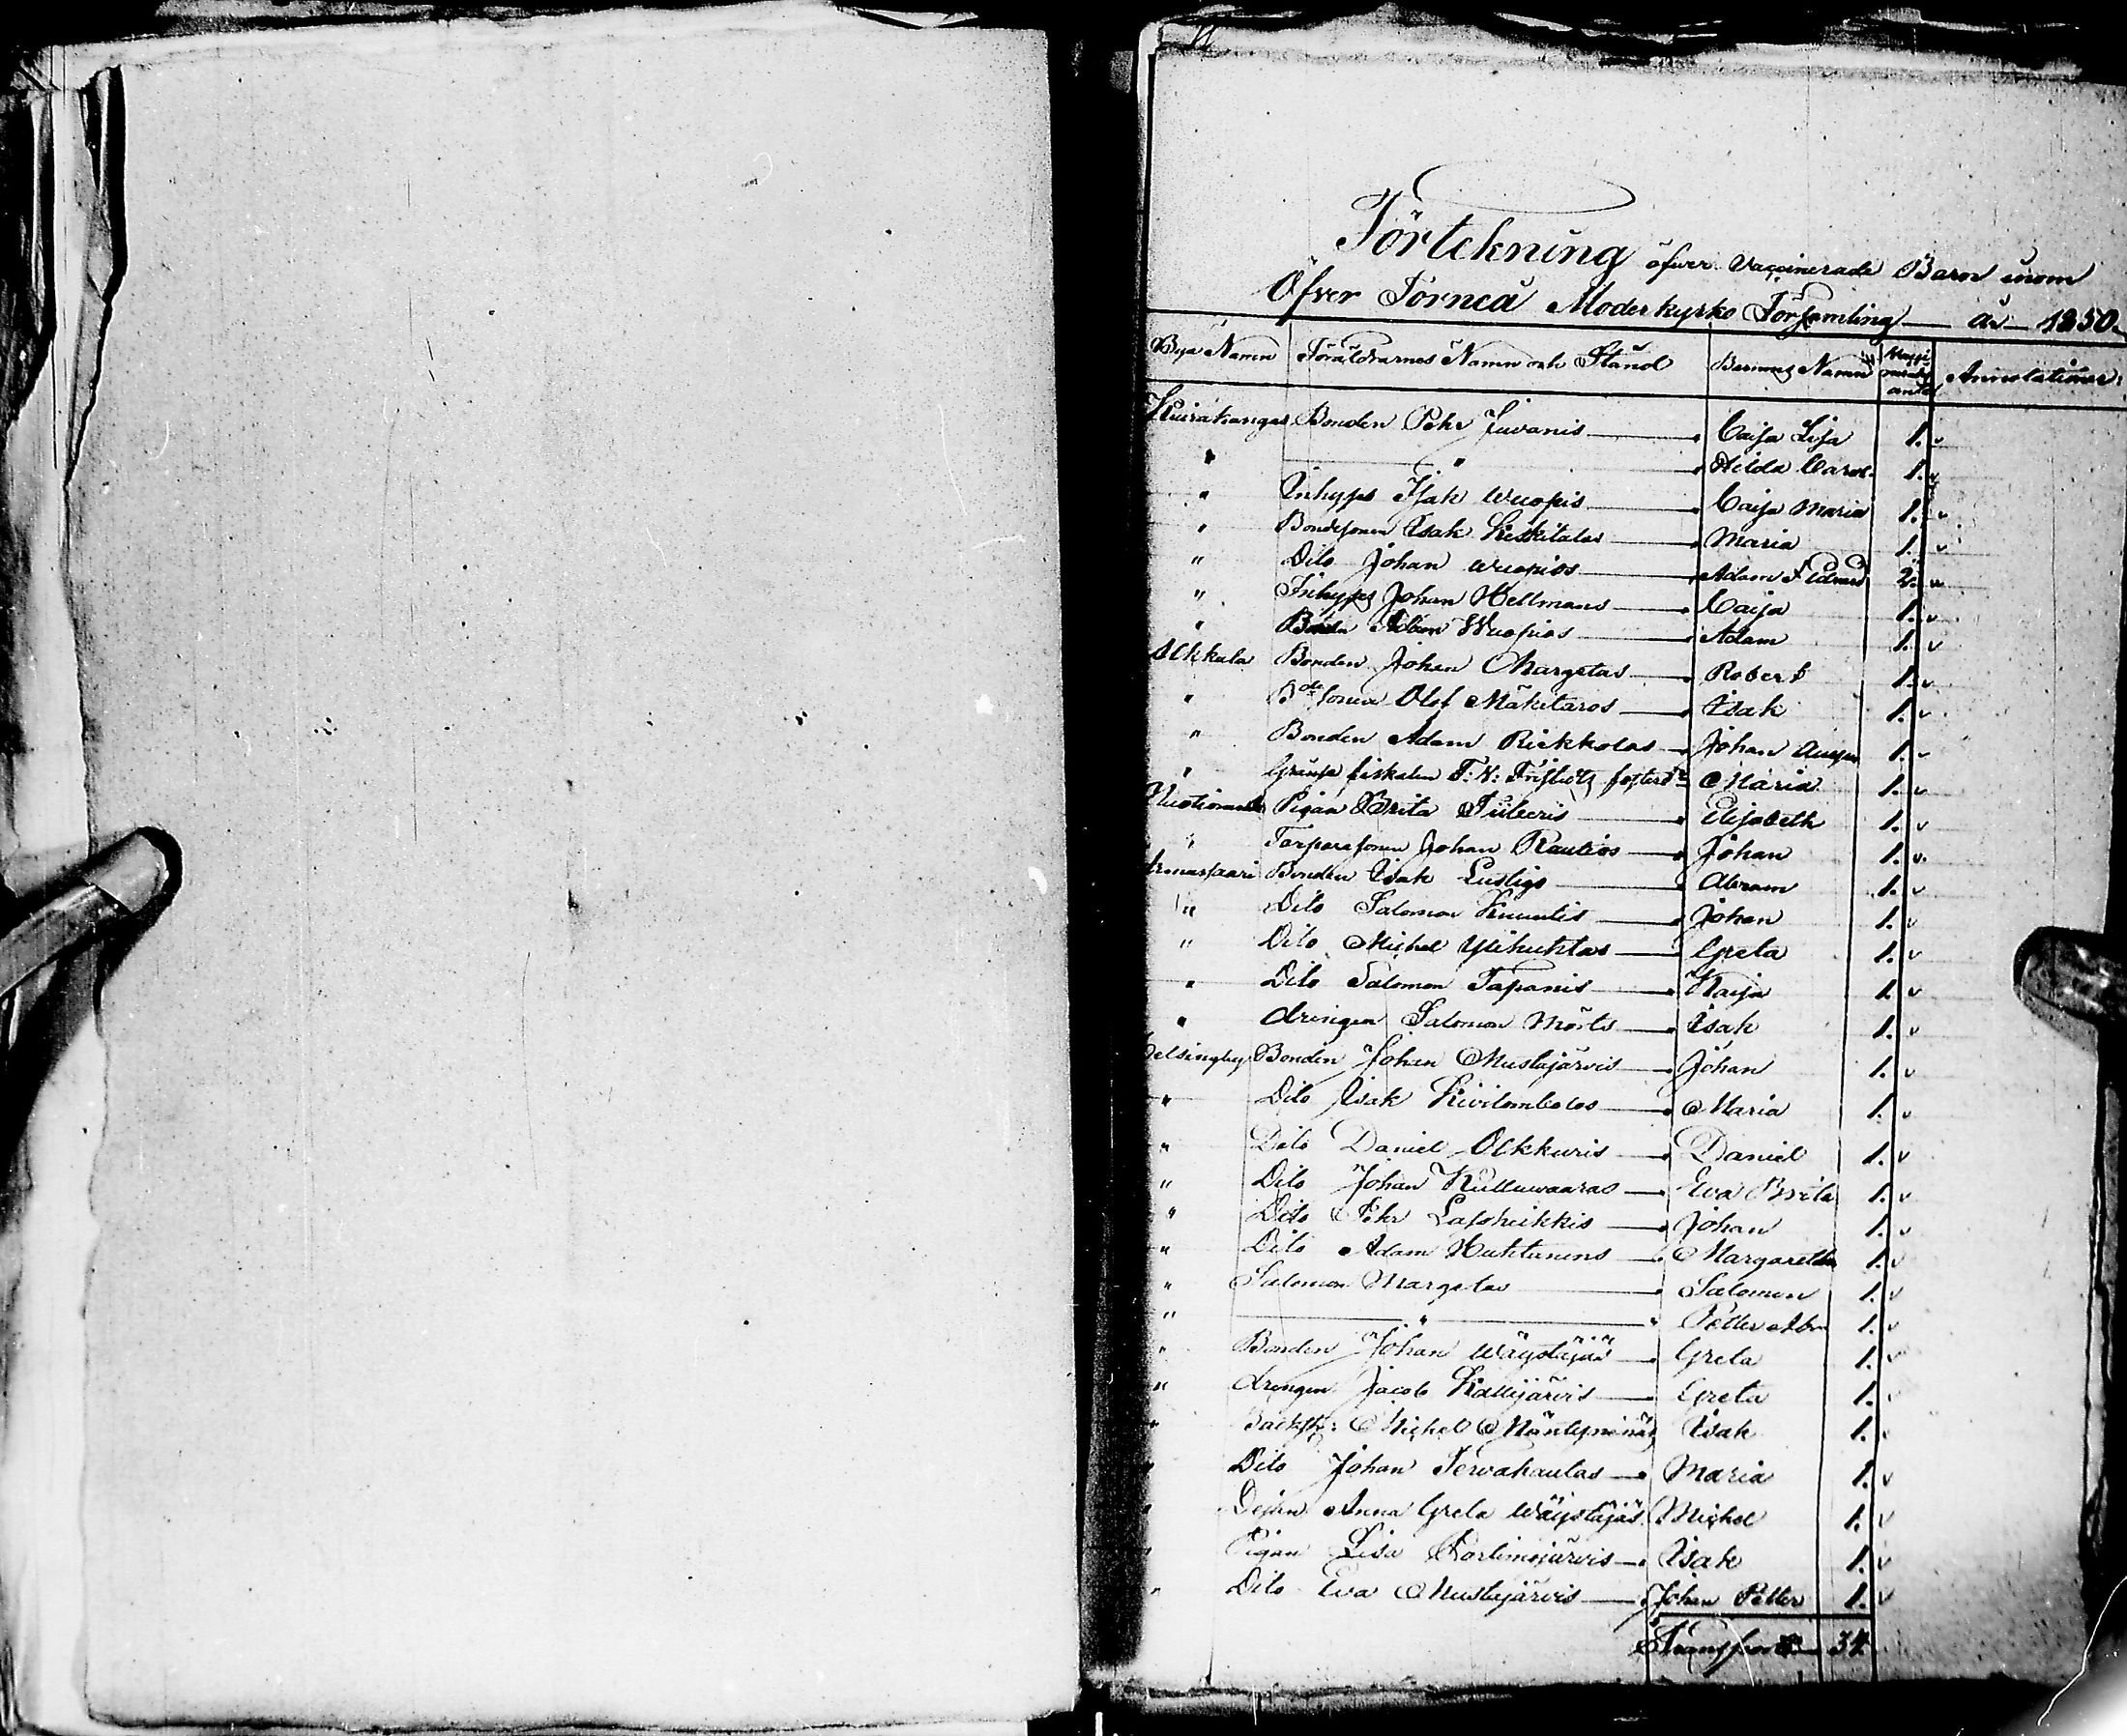 Förtekning öfver Vaccinerade Barn inom
Öfver Torneå Moderkyrko Församling år 1850.
Bya Namn Föräldrarnes Namn och Stånd Barnens Namn Annotationer.
Kuirakangas Bonden Pehr Juvanis Caisa Lisa 1. v
" " Hilda Carol. 1. v
" Inhyses Isak Wuopis Caisa Maria 1. v
" Bondesonen Isak Keskitalos Maria 1. v
" Dito Johan Wuopios Adam Edvard 2. v
" Inhyses Johan Hellmans Caisa 1. v
" Bonden Wuopios Adam 1. v
Alkkula Bonden Johan Margetas Robert 1. v
" Bdesonen Olof Mäkitaros Isak 1. v
" Bonden Adam Rickkolas Johan August 1. v
" Maria 1. v
Pigan Brita Elisabeth 1. v
" Torparesonen Johan Rautios Johan 1. v
Armassaari Bonden Isak Lustigs Abram 1. v
" Dito Salomon Knuutis Johan 1. v
" Dito Michel Ylihuhtas Greta 1. v
" Dito Salomon Tapanis Kaisa 1. v
" drengen Salomon Mörts Isak 1. v
Helsingby Bonden Johan Mustajärvis Johan 1. v
" Dito Isak Kivilombolos Maria 1. v
" Dito Daniel Alkkuris Daniel 1. v
" Dito Johan Kulluvaaras Eva Brita 1. v
" Dito Pehr Lassheikkis Johan 1. v
" Dito Adam Huhtanens Margaretha 1. v
" Salomon Margetas Salomon 1. v
" " Petter Abr. 1. v
" Bonden Johan Wäystäjäs Greta 1. v
" drengen Jacob Kallijärvis Greta 1. v
" Backst: Michel Isak 1. v
" Dito Johan Tervahautas Maria 1. v
" Anna Greta Wäystäjäs Michel 1. v
" Pigan Lisa Portimojärvis Isak 1. v
" Dito Eva Mustajärvis Johan Petter 1. v
Transport 34